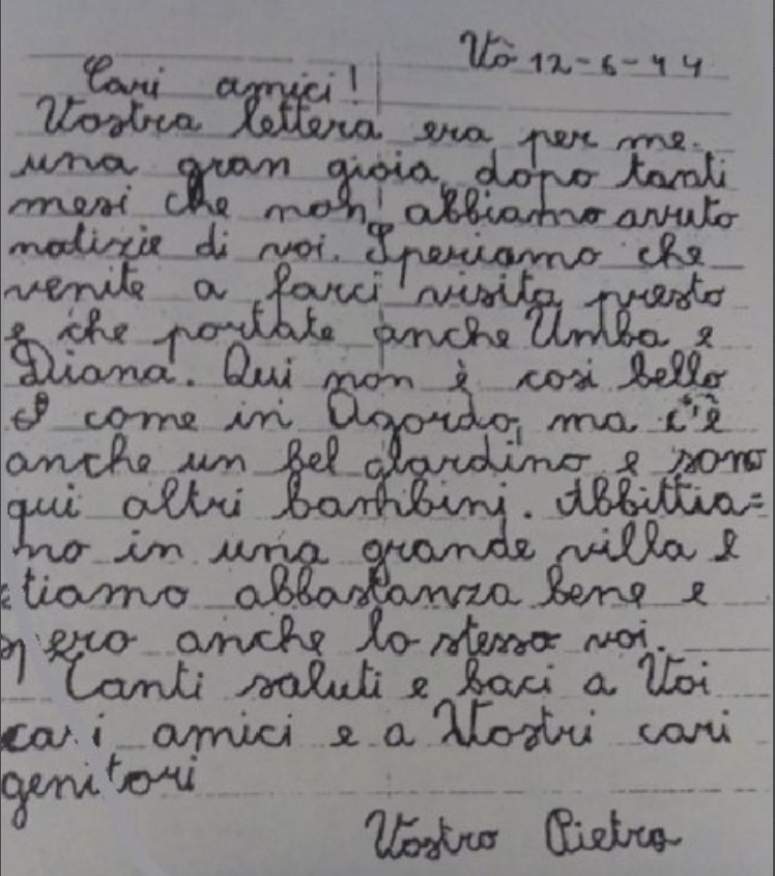 Vò 12-6-44
Cari amici!
Vostra lettera era per me
una gran gioia, dopo tanti
mesi che non abbiamo avuto
notizie di voi. Speriamo che
venite a farci visita presto
e che portate anche Umba e
Diana. Qui non è cosi bello
come in Agordo, ma c'è
anche un bel giardino e sono
qui altri bambini. Abbittia=
mo in una grande villa e
stiamo abbastanza bene e
spero anche lo stesso voi.
Tanti saluti e baci a Voi
cari amici e a Vostri cari
genitori
Vostro Pietro